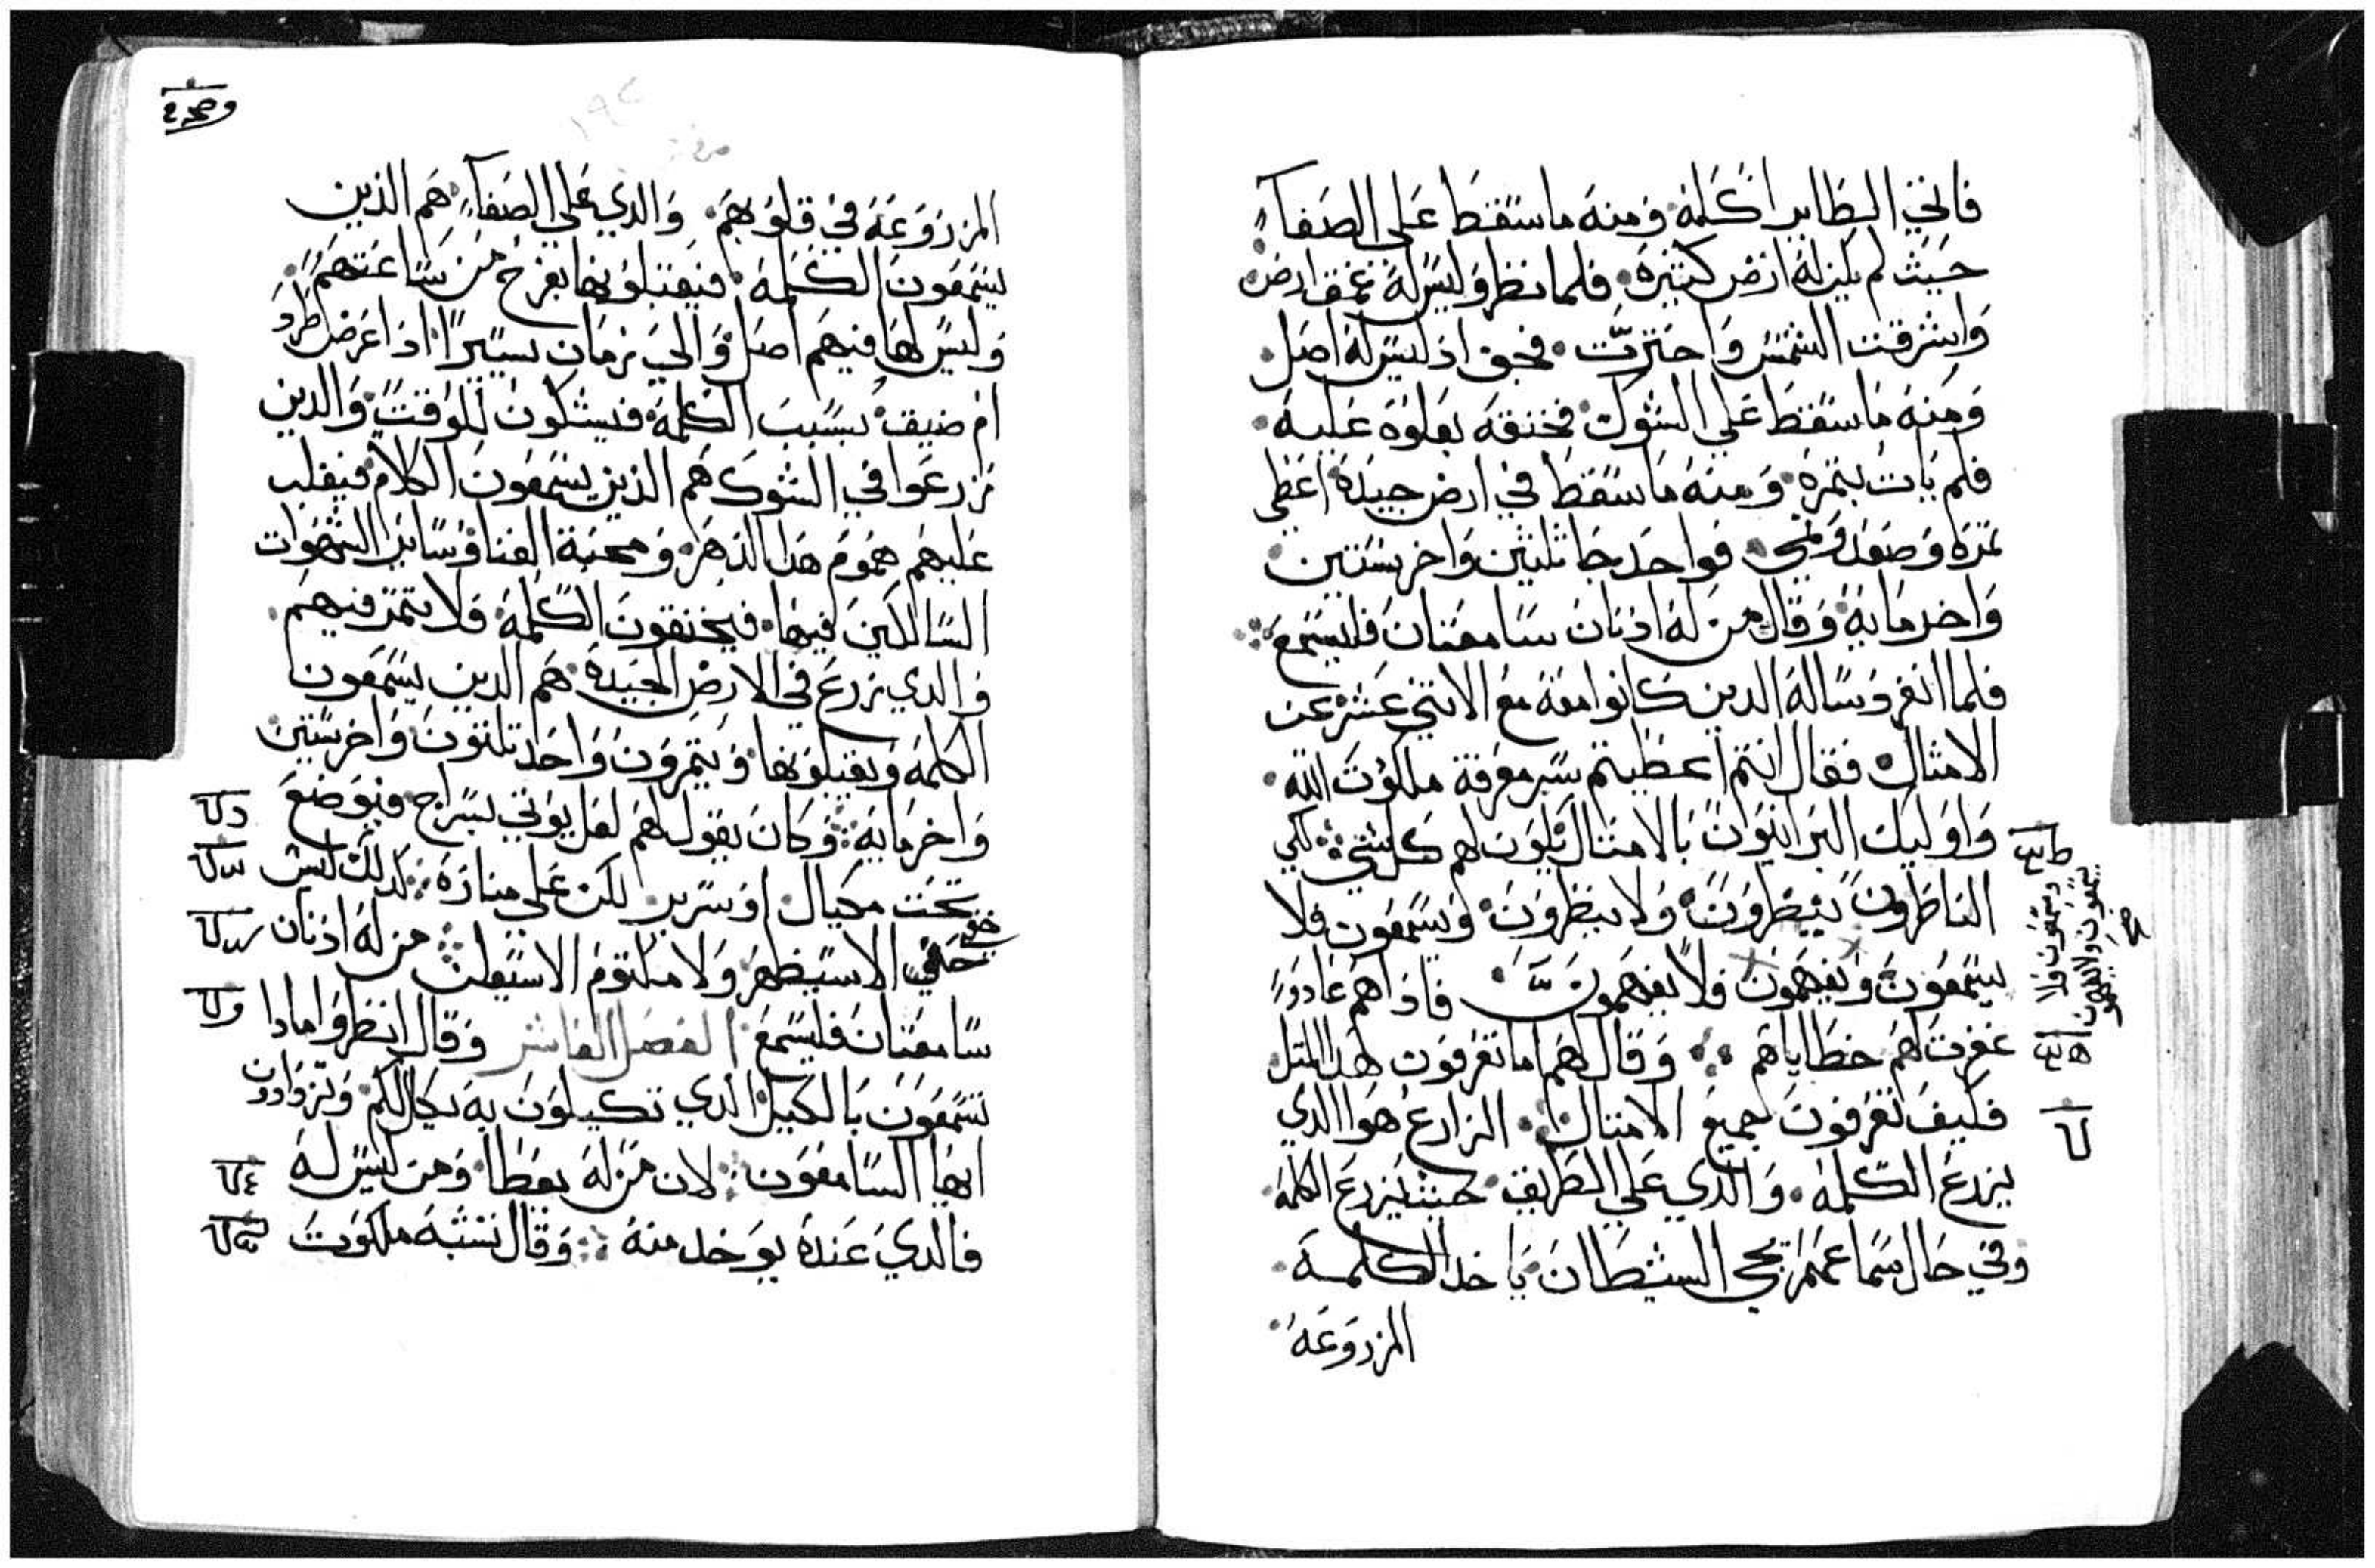 فاتي الطاير اكله ومنه ما سقط على الصفا
حيث لم يكن له ارض كثيرة فلما نظر وليس له عمق ارض
واشرقت الشمس واحترت فجف اذ ليس له اصل
ومنه ما سقط علي الشوك فخنقه بعلوه عليه
فلم يات بثمرة ومنه ما سقط في ارض جيدة اعطي
ثمرة وصعد ونمي فواحد جا ثلثين واخر بستين
واخر ماية وقال من له اذنان سامعتان فليسمع
فلما انفرد ساله الدين كانوا معه مع الاثني عشر عن
الامثال فقال انتم اعطيتم سر معرفة ملكوت الله
واوليك البرانيون بالامثال يكون لهم كل شي لكي
الناظرون ينظرون ولا ينظرون ويسمعون فلا
يسمعون ويفهمون فلا يفهمون فاذا هم عادوا
غفرت لهم خطاياهم وقال لهم اما تعرفون هدا المثل
فكيف تعرفون جميع الامثال الزارع هو الذي
يزرع الكلمة والذي علي الطريق حيث يزرع الكلمة
وفي حال سماعهم يجي الشيطان ياخد الكلمة
المزروعه
المزروعة في قلوبهم والدي علي الصفا هم الذين
يسمعون الكلمة فيقبلونها بفرح من ساعتهم
وليس لها فيهم اصل والي زمان يسيرا اذا عرض طرد
ام ضيق بسبب الكلمة فيشكون للوقت والدين
زرعوا في الشوك هم الذين يسمعون الكلام فيغلب
عليهم هموم هدا الدهر ومحبة الغنا وساير الشهوات
السالكين فيها فيخنقون الكلمة ولا يتمر فيهم
والدي زرع في الارض الجيدة هم الدين يسمعون
الكلمة ويقبلونها ويثمرون واحد ثلثون واخر ستين
واخر ماية وكان يقول لهم لعل يوتي بسراج فيوضع
تحت مكيال او سرير لكن علي منارة كدلك ليس
خفي الا سيظهر ولا مكتوم الا سيعلن من له اذنان
سامعتان فليسمع الفصل العاشر وقال انظروا مادا
تسمعون بالكيل الدي تكيلون به يكال لكم وتزوادون
ايها السامعون لان من له يعطا ومن ليس له
فالدي عنده يوخد منه وقال نشبه ملكوت